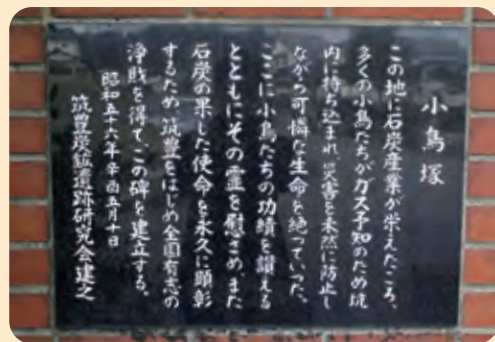 小鳥塚
この地に石炭産業が栄えたころ、
多くの小鳥たちがガス予知のため坑
内に持ち込まれ、災害を未然に防止し
ながら可憐な生命を絶っていった。
ここに小鳥たちの功績を讃える
とともにその霊を慰さめ、また
石炭の果した使命を永久に顕彰
するため、筑豊をはじめ全国有志の
浄財を得て、この碑を建立する。
昭和五十六年辛酉五月十日
筑豊炭鉱遺跡研究会建之